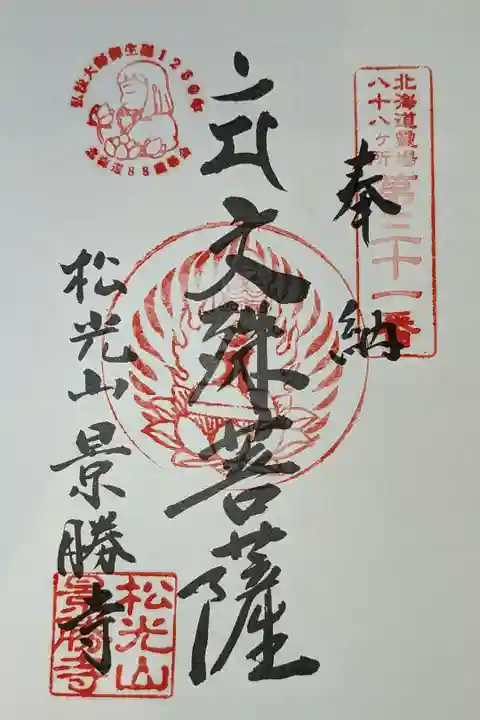 北海道霊場
八十八ヶ所
第三十一番
奉納
文殊菩薩
松光山景勝寺
弘法大師御生誕1250年
北海道88霊場会
松光山
景勝寺